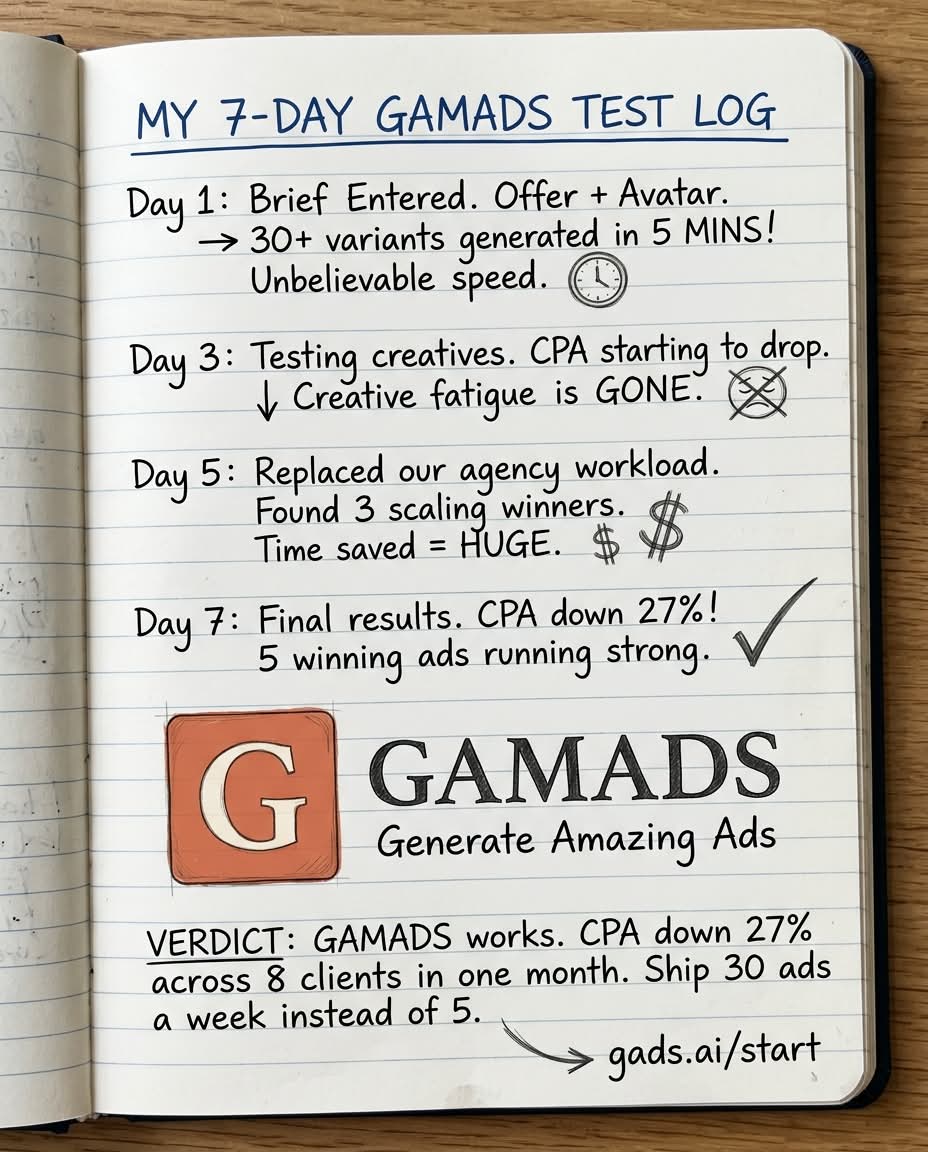 MY 7-DAY GAMADS TEST LOG
Day 1: Brief Entered. Offer + Avatar.
→ 30+ variants generated in 5 MINS!
Unbelievable speed.
Day 3: Testing creatives. CPA starting to drop.
↓ Creative fatigue is GONE.
Day 5: Replaced our agency workload.
Found 3 scaling winners.
Time saved = HUGE. $ $
Day 7: Final results. CPA down 27%!
5 winning ads running strong.
G GAMADS
Generate Amazing Ads
VERDICT: GAMADS works. CPA down 27%
across 8 clients in one month. Ship 30 ads
a week instead of 5.
→ gads.ai/start